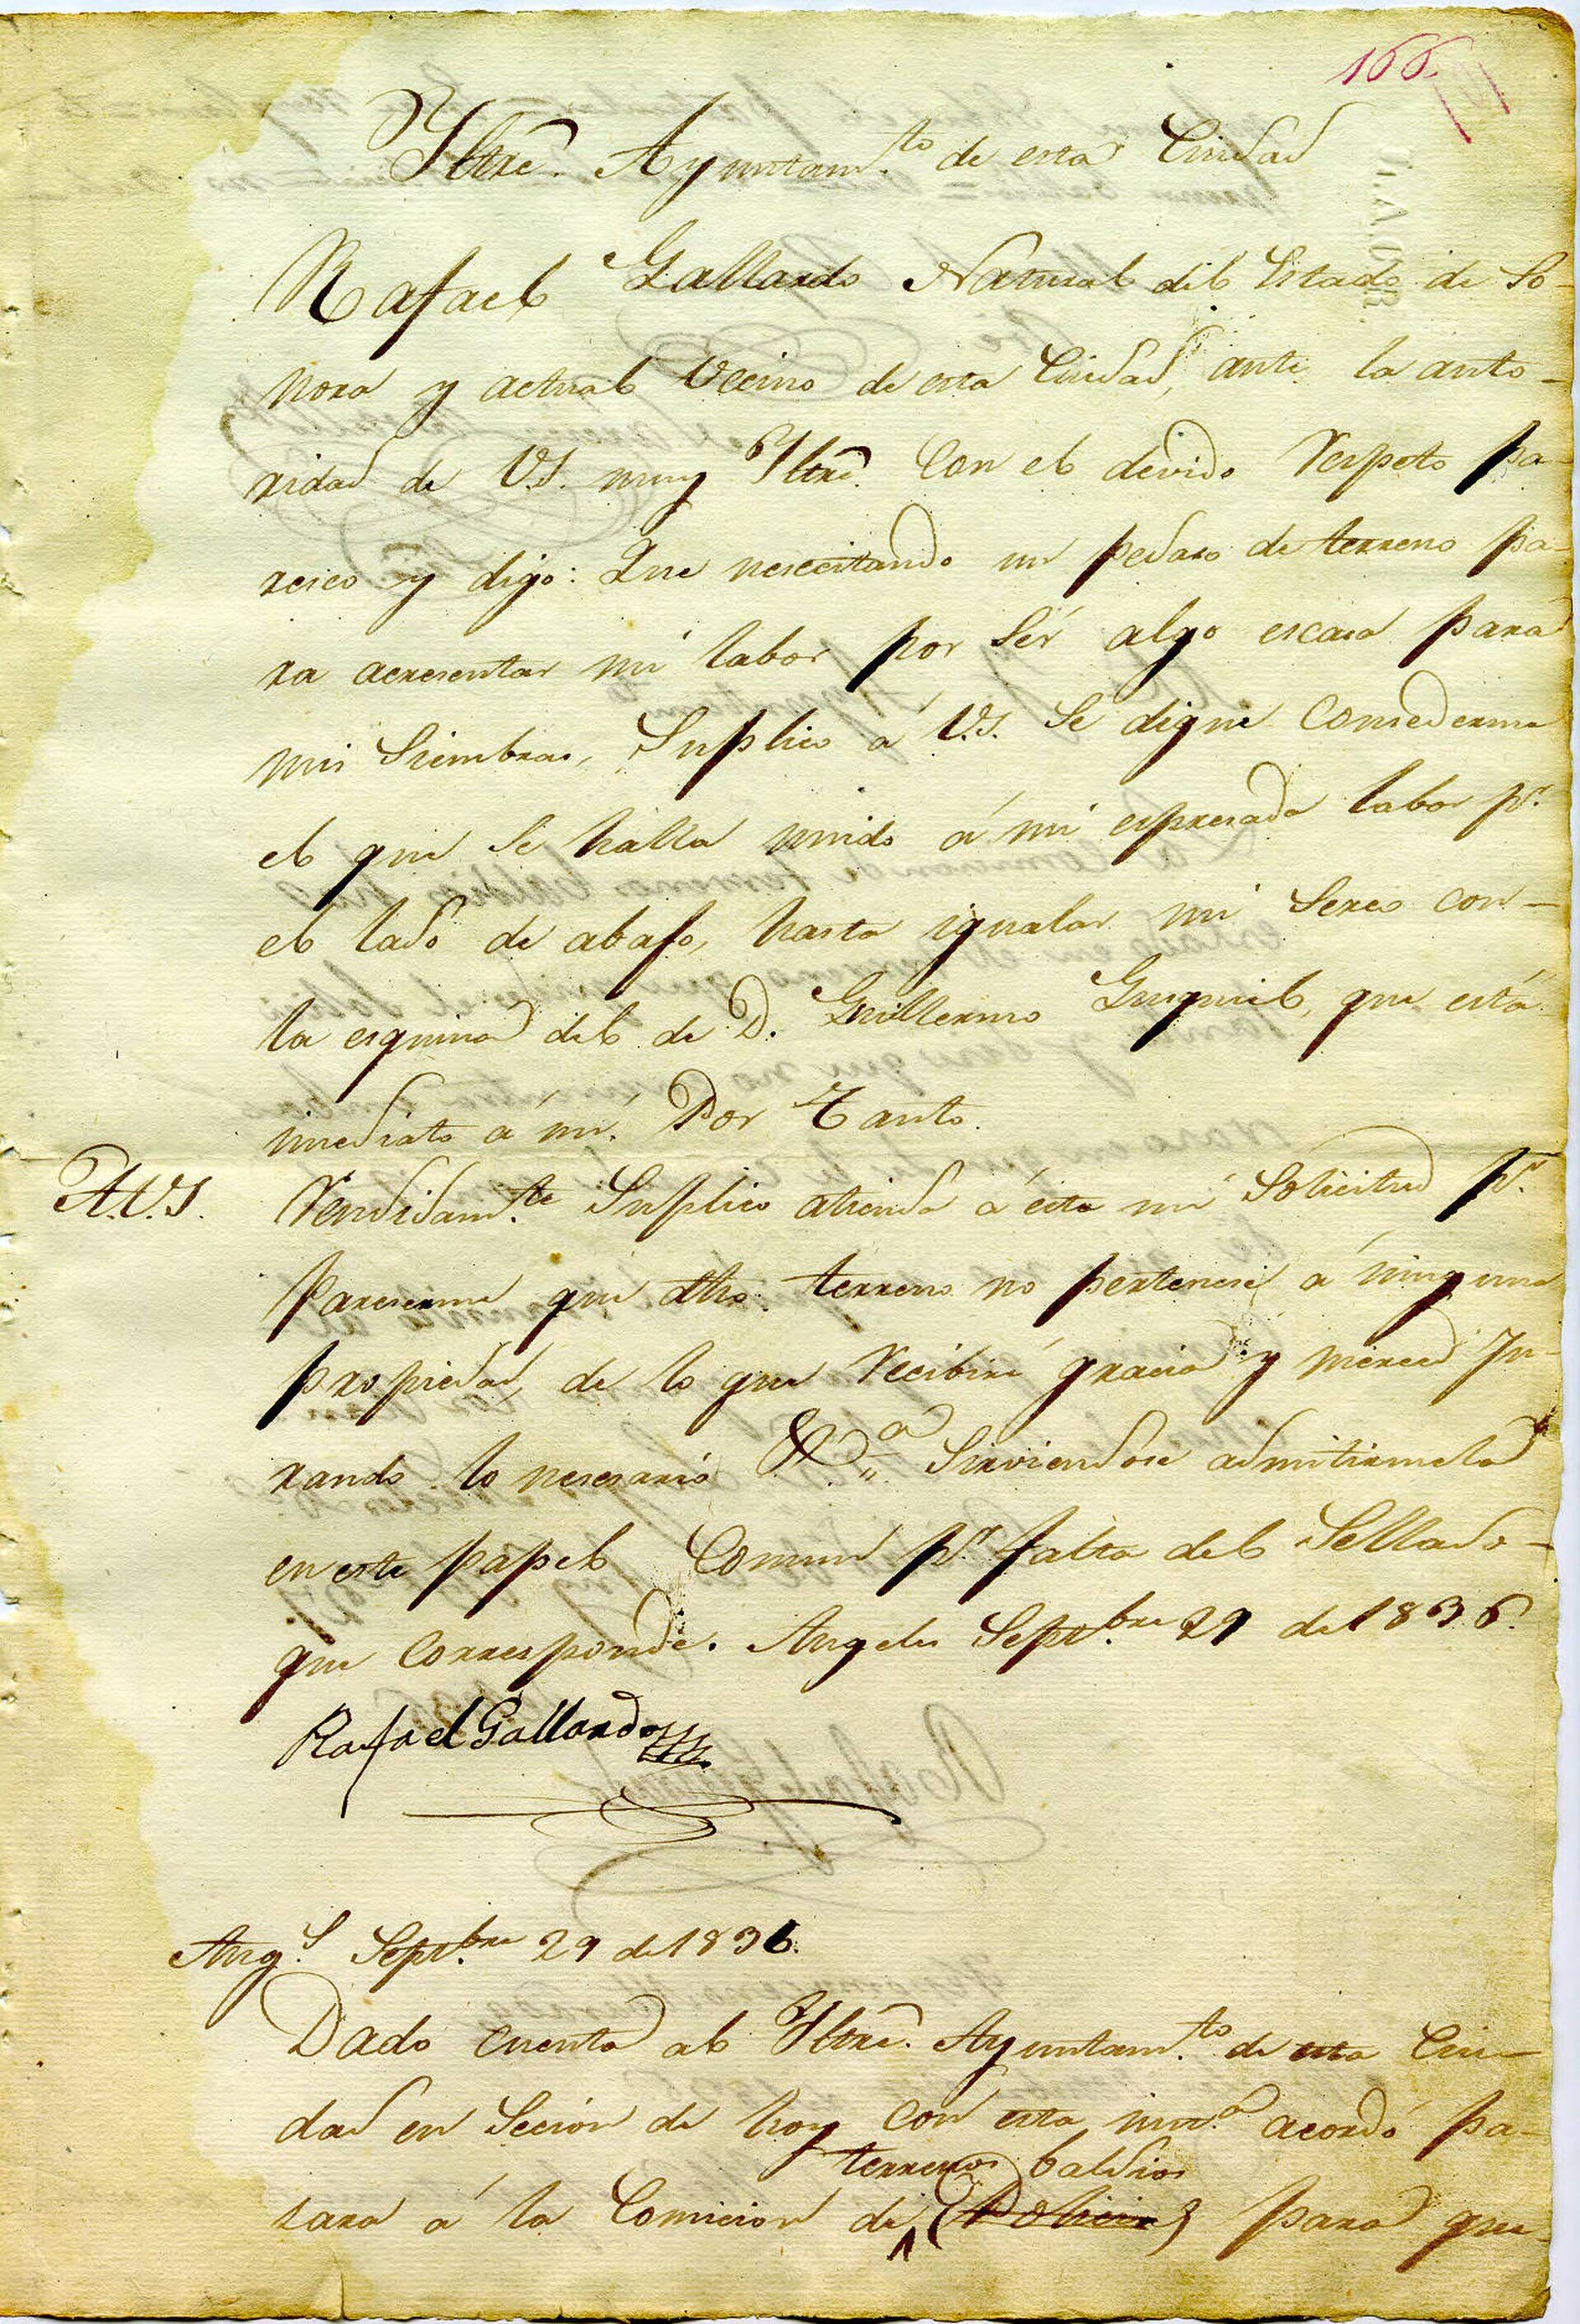 166.
Yltre. Ayuntam.to de esta Ciudad
Rafael Gallardo Natural del Estado de So-
nora y actual Vecino de esta Ciudad, ante la auto-
ridad de V.S. muy Yltre. Con el devido Respeto pa-
resco y digo: Que nesecitando un pedaso de terreno pa-
ra acresentar mi labor por Sér algo escasa para
mis Siembras, Suplico á V.S. Se digne Consederme
el que Se halla unido á mi espresada labor pr.
el lado de abajo, hasta igualar mi Serco con-
la esquina del de D. Guillermo que está
imediato á mi. Por Tanto.
A.V.S. Rendidam.te Suplico atienda á esta mi Solicitud pr.
Pareserme que dho. terreno no pertenese á ninguna
propiedad, de lo que Recibiré gracia y merced Ju-
rando lo nesesario &.a Sirviendose admitirmela
en este papel Comun pr. falta del Sellado-
que Corresponde. Angeles Septbre. 29 de 1836.
Rafael Gallardo
Angs. Septbre. 29 de 1836.
Dado cuenta al Yltre. Ayuntam.to de esta Ciu-
dad en Seción de hoy con esta inst.a acordó pa-
terrenos baldios
sara á la Comicion de (Policia) para que